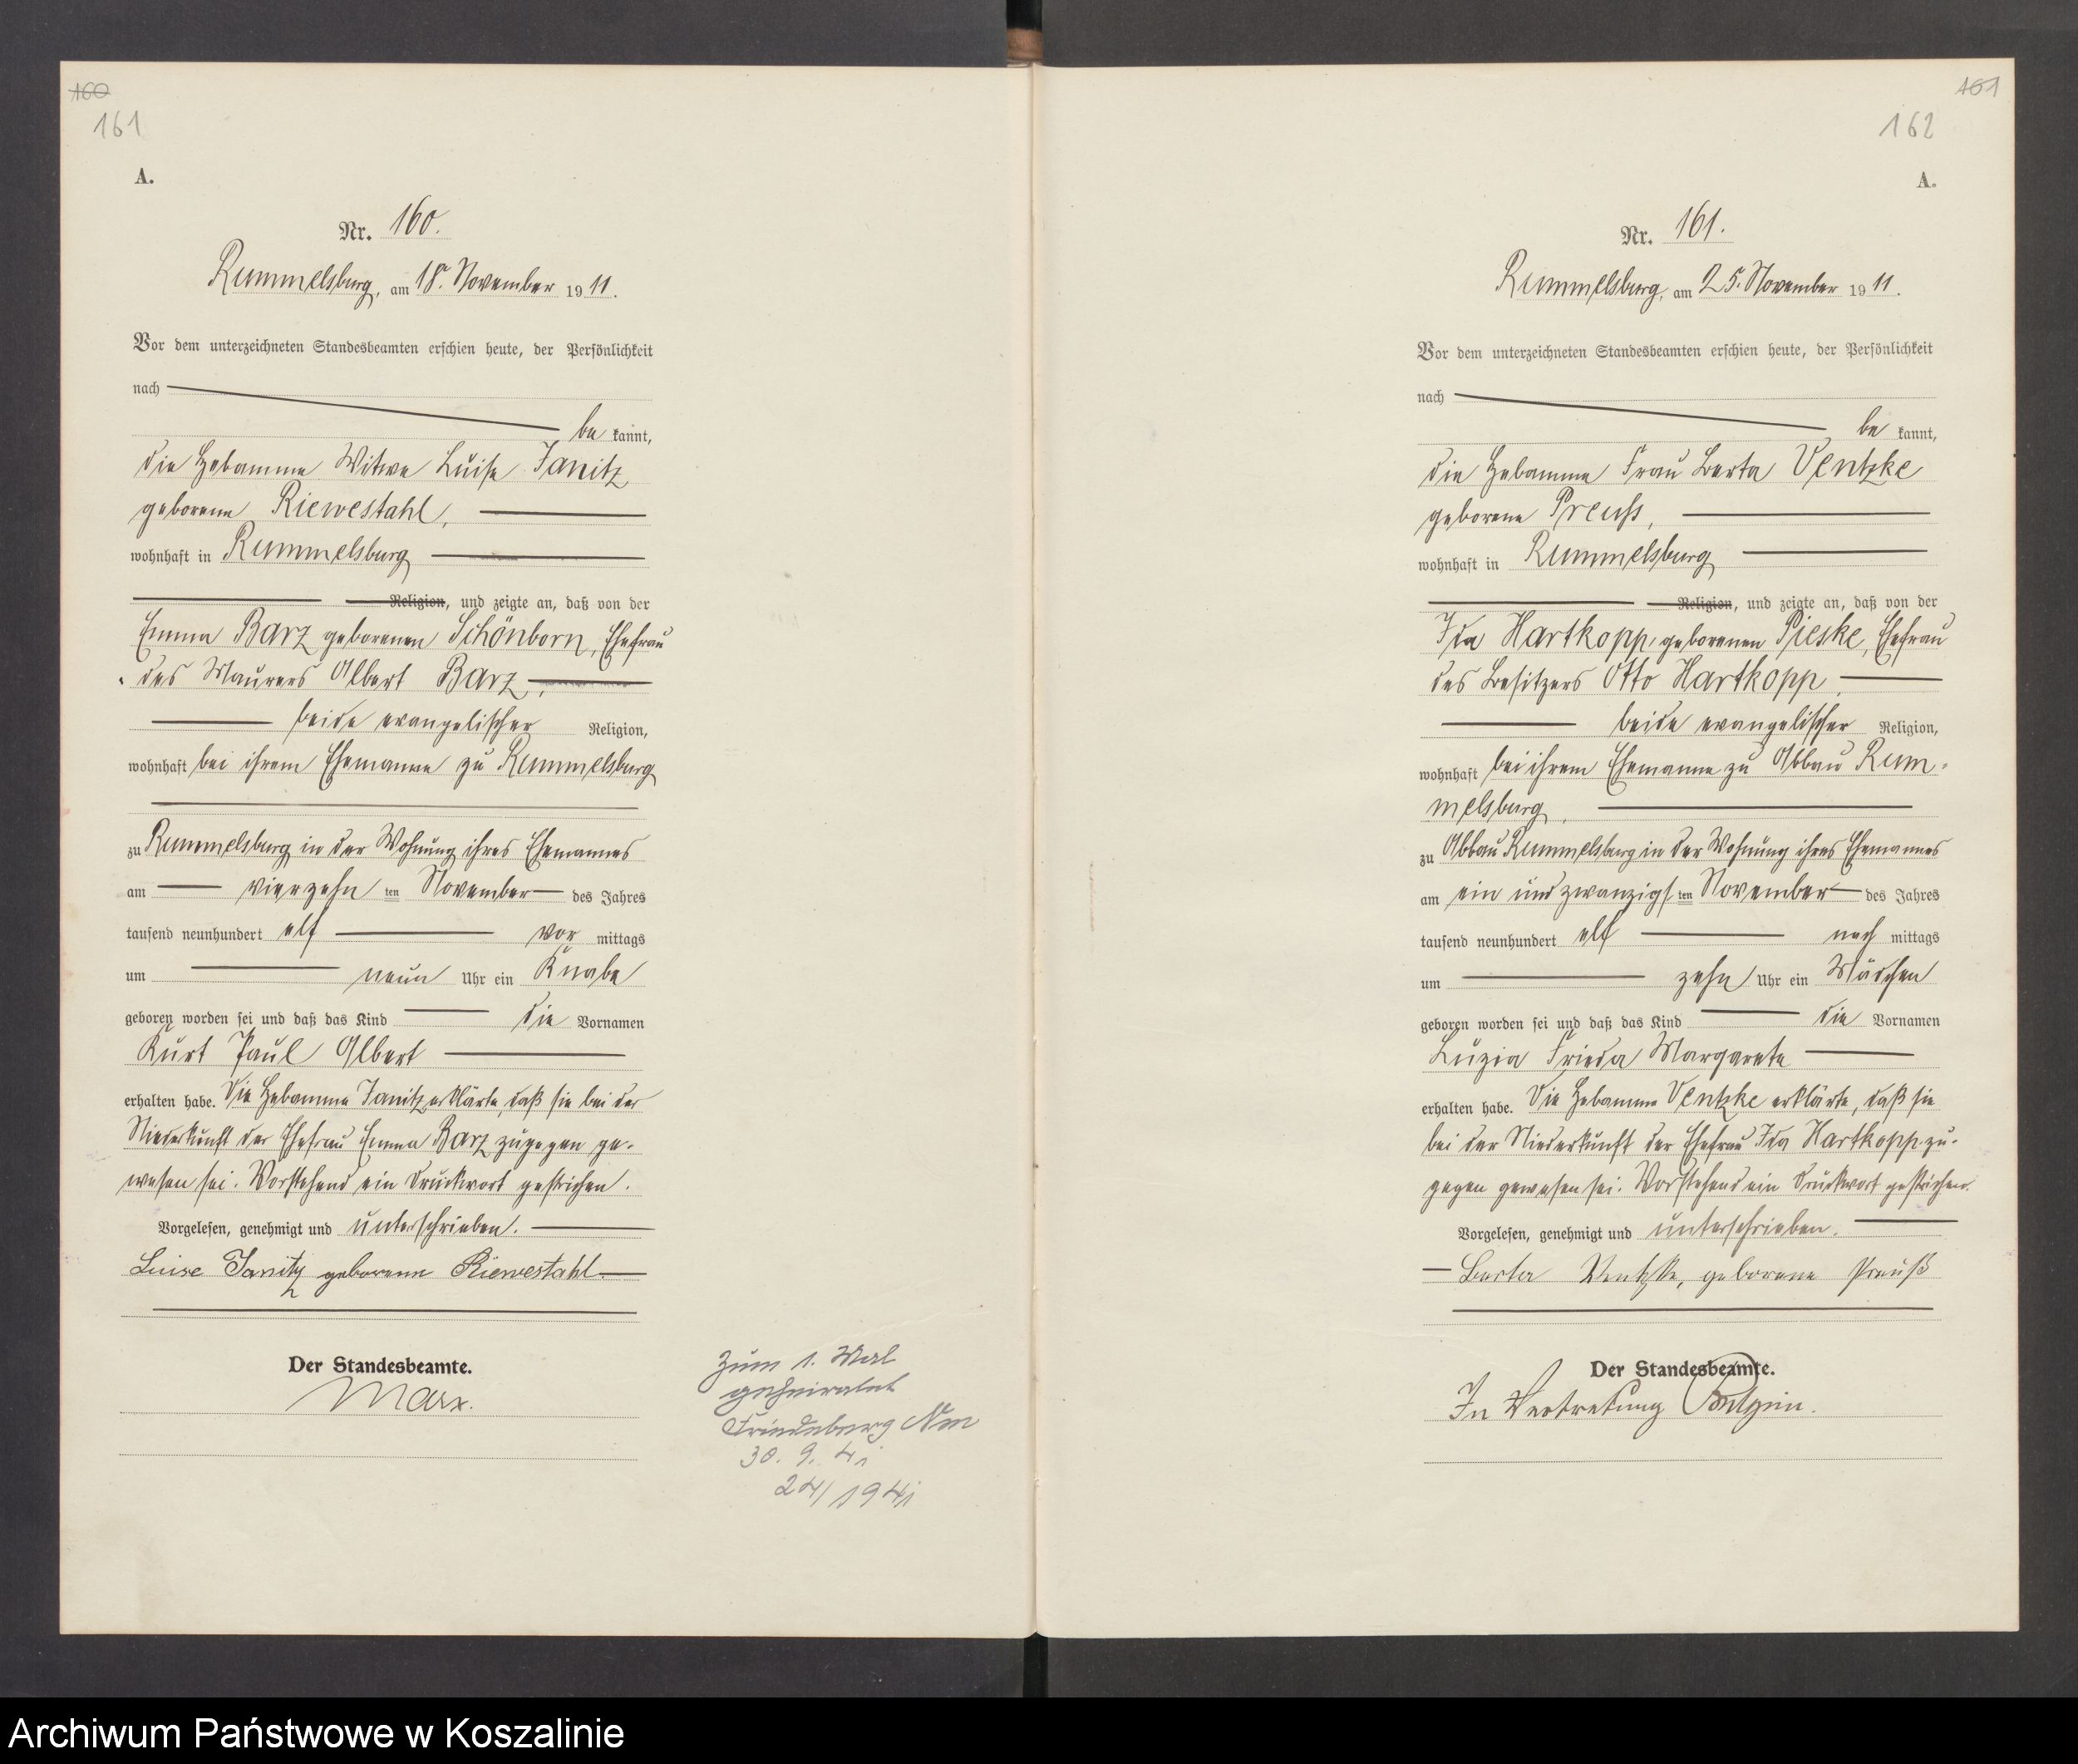 160
161
A.
Nr. 160.
Rummelsburg, am 18. November 1911.
Vor dem unterzeichneten Standesbeamten erschien heute, der Persönlichkeit
nach
be kannt,
die Hebamme Witwe Luise Janitz
geborene Riewestahl,
wohnhaft in Rummelsburg
Religion, und zeigte an, daß von der
Emma Barz geborenen Schönborn, Ehefrau
des Maurers Albert Barz,
beide evangelischer Religion,
wohnhaft bei ihrem Ehemanne zu Rummelsburg
zu Rummelsburg in der Wohnung ihres Ehemannes
am vierzehn ten November des Jahres
tausend neunhundert elf vor mittags
um neun Uhr ein Knabe
geboren worden sei und daß das Kind die Vornamen
Kurt Paul Albert
erhalten habe. Die Hebamme Janitz erklärte, daß sie bei der
Niederkunft der Ehefrau Emma Barz zugegen ge-
wesen sei. Vorstehend ein Druckwort gestrichen.
Vorgelesen, genehmigt und unterschrieben.
Luise Janitz geborene Riewestahl
Der Standesbeamte.
Marx.
Zum 1. Mal
geheiratet
Friedeberg Nm
30. 9. 41
24/1941
161
162
A.
Nr. 161.
Rummelsburg, am 25. November 1911.
Vor dem unterzeichneten Standesbeamten erschien heute, der Persönlichkeit
nach
be kannt,
die Hebamme Frau Berta Ventzke
geborene Preuß,
wohnhaft in Rummelsburg
Religion, und zeigte an, daß von der
Ida Hartkopp, geborenen Pieske, Ehefrau
des Besitzers Otto Hartkopp,
beide evangelischer Religion,
wohnhaft bei ihrem Ehemanne zu Abbau Rum-
melsburg,
zu Abbau Rummelsburg in der Wohnung ihres Ehemannes
am ein und zwanzigs ten November des Jahres
tausend neunhundert elf nach mittags
um zehn Uhr ein Mädchen
geboren worden sei und daß das Kind die Vornamen
Luzia Frieda Margarete
erhalten habe. Die Hebamme Ventzke erklärte, daß sie
bei der Niederkunft der Ehefrau Ida Hartkopp zu-
gegen gewesen sei. Vorstehend ein Druckwort gestrichen.
Vorgelesen, genehmigt und unterschrieben.
Berta Ventzke, geborene Preuß
Der Standesbeamte.
In Vertretung
Archiwum Państwowe w Koszalinie